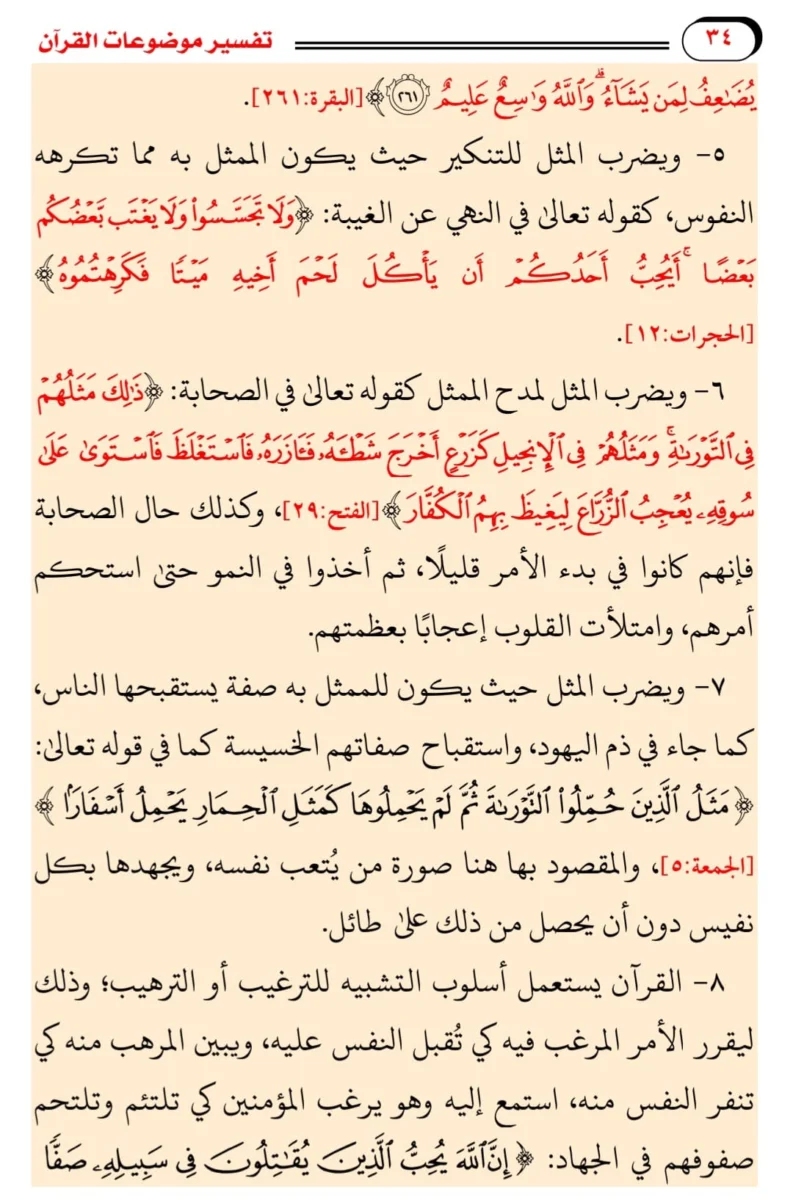 ٣٤
تفسير موضوعات القرآن
يُضَٰعِفُ لِمَن يَشَآءُۗ وَٱللَّهُ وَٰسِعٌ عَلِيمٌ ٢٦١ ﴾ [البقرة:٢٦١].
٥- ويضرب المثل للتنكير حيث يكون الممثل به مما تكرهه
النفوس، كقوله تعالىٰ في النهي عن الغيبة: ﴿وَلَا تَجَسَّسُواْ وَلَا يَغْتَب بَّعْضُكُم
بَعْضًاۚ أَيُحِبُّ أَحَدُكُمْ أَن يَأْكُلَ لَحْمَ أَخِيهِ مَيْتًا فَكَرِهْتُمُوهُ﴾
[الحجرات:١٢].
٦- ويضرب المثل لمدح الممثل كقوله تعالىٰ في الصحابة: ﴿ذَٰلِكَ مَثَلُهُمْ
فِي ٱلتَّوْرَىٰةِۚ وَمَثَلُهُمْ فِي ٱلْإِنجِيلِ كَزَرْعٍ أَخْرَجَ شَطْـَٔهُۥ فَـَٔازَرَهُۥ فَٱسْتَغْلَظَ فَٱسْتَوَىٰ عَلَىٰ
سُوقِهِۦ يُعْجِبُ ٱلزُّرَّاعَ لِيَغِيظَ بِهِمُ ٱلْكُفَّارَ﴾ [الفتح:٢٩]، وكذلك حال الصحابة
فإنهم كانوا في بدء الأمر قليلًا، ثم أخذوا في النمو حتىٰ استحكم
أمرهم، وامتلأت القلوب إعجابًا بعظمتهم.
٧- ويضرب المثل حيث يكون للممثل به صفة يستقبحها الناس،
كما جاء في ذم اليهود، واستقباح صفاتهم الخسيسة كما في قوله تعالىٰ:
﴿مَثَلُ ٱلَّذِينَ حُمِّلُواْ ٱلتَّوْرَىٰةَ ثُمَّ لَمْ يَحْمِلُوهَا كَمَثَلِ ٱلْحِمَارِ يَحْمِلُ أَسْفَارَۢا ﴾
[الجمعة:٥]، والمقصود بها هنا صورة من يُتعب نفسه، ويجهدها بكل
نفيس دون أن يحصل من ذلك علىٰ طائل.
٨- القرآن يستعمل أسلوب التشبيه للترغيب أو الترهيب؛ وذلك
ليقرر الأمر المرغب فيه كي تُقبل النفس عليه، ويبين المرهب منه كي
تنفر النفس منه، استمع إليه وهو يرغب المؤمنين كي تلتئم وتلتحم
صفوفهم في الجهاد: ﴿ إِنَّ ٱللَّهَ يُحِبُّ ٱلَّذِينَ يُقَٰتِلُونَ فِي سَبِيلِهِۦ صَفًّا